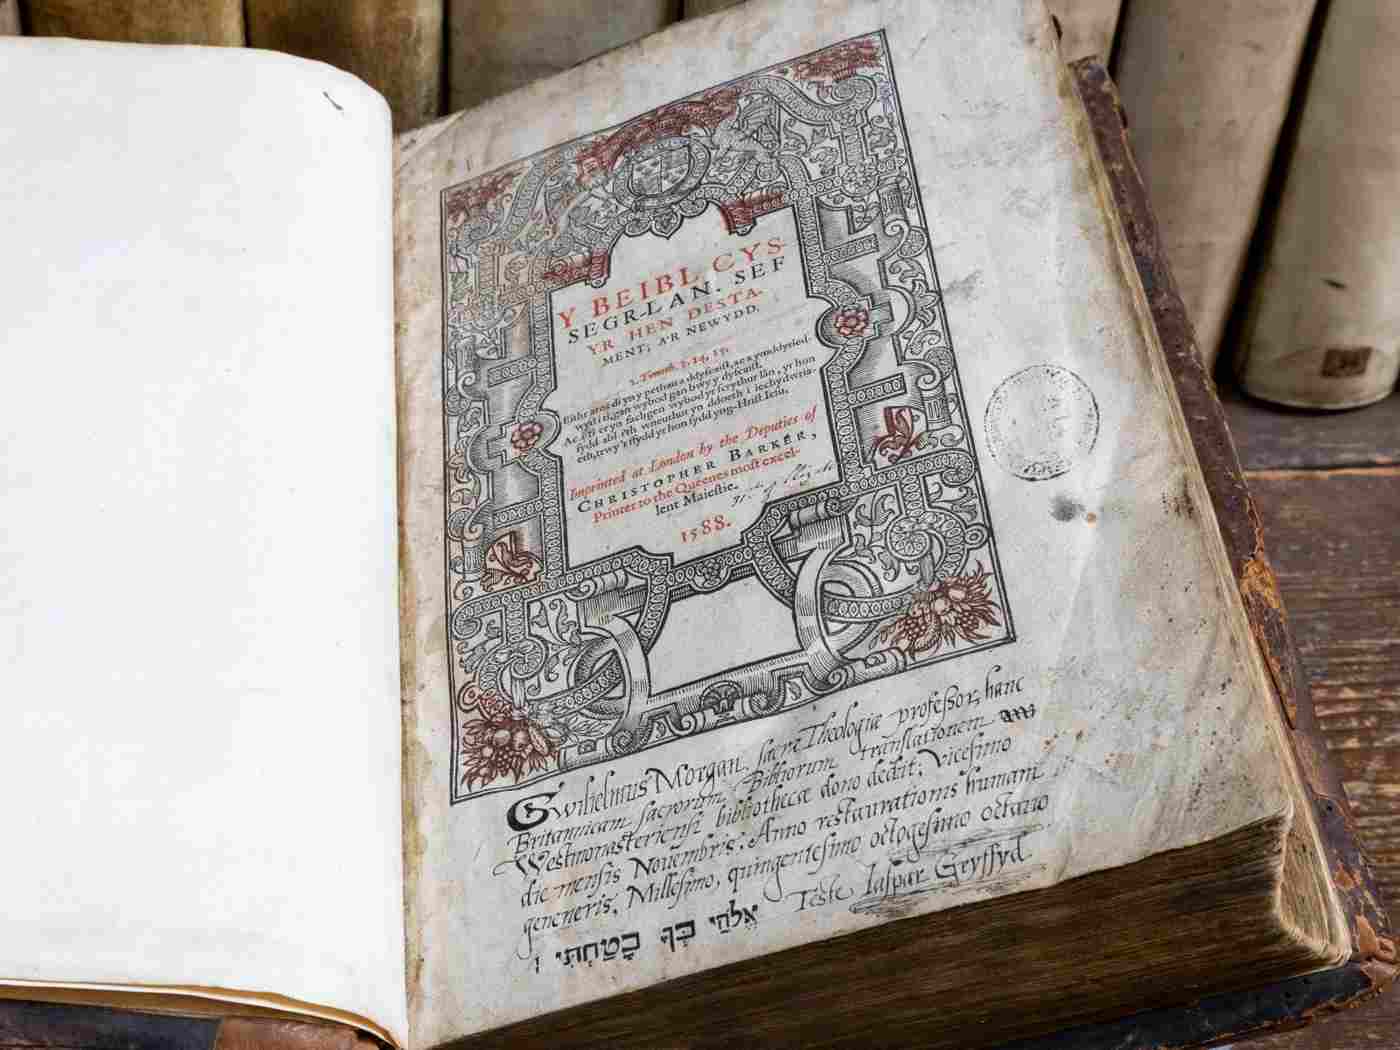 Y BEIBL CYS-
SEGR-LAN. SEF
YR HEN DESTA-
MENT, A'R NEWYDD.
2. Timoth. 3. 14, 15.
Eithr aros di yn y pethau a ddyscaist, ac a ymddyried-
wyd i ti, gan wybod gan bwy y dyscaist.
Ac i ti er yn fachgen wybod yr scrythur lân, yr hon
sydd abl i'th wneuthur yn ddoeth i iechydwria-
eth, trwy'r ffydd yr hon sydd yng-Hrist Iesu.
Imprinted at London by the Deputies of
CHRISTOPHER BARKER,
Printer to the Queenes most excel-
lent Maiestie.
1588.
Gwilielmus Morgan, sacre Theologiæ professor, hanc
Britannicam sacrorum Bibliorum translationem
Westmonasteriensi bibliothecæ dono dedit: vicesimo
die mensis Novembris: Anno restaurationis humani
generneris, Millesimo, quingentesimo octogesimo octavo
Teste Iaspar Gryffyd
אֱלֹהַי בְּךָ בָטַחְתִּי